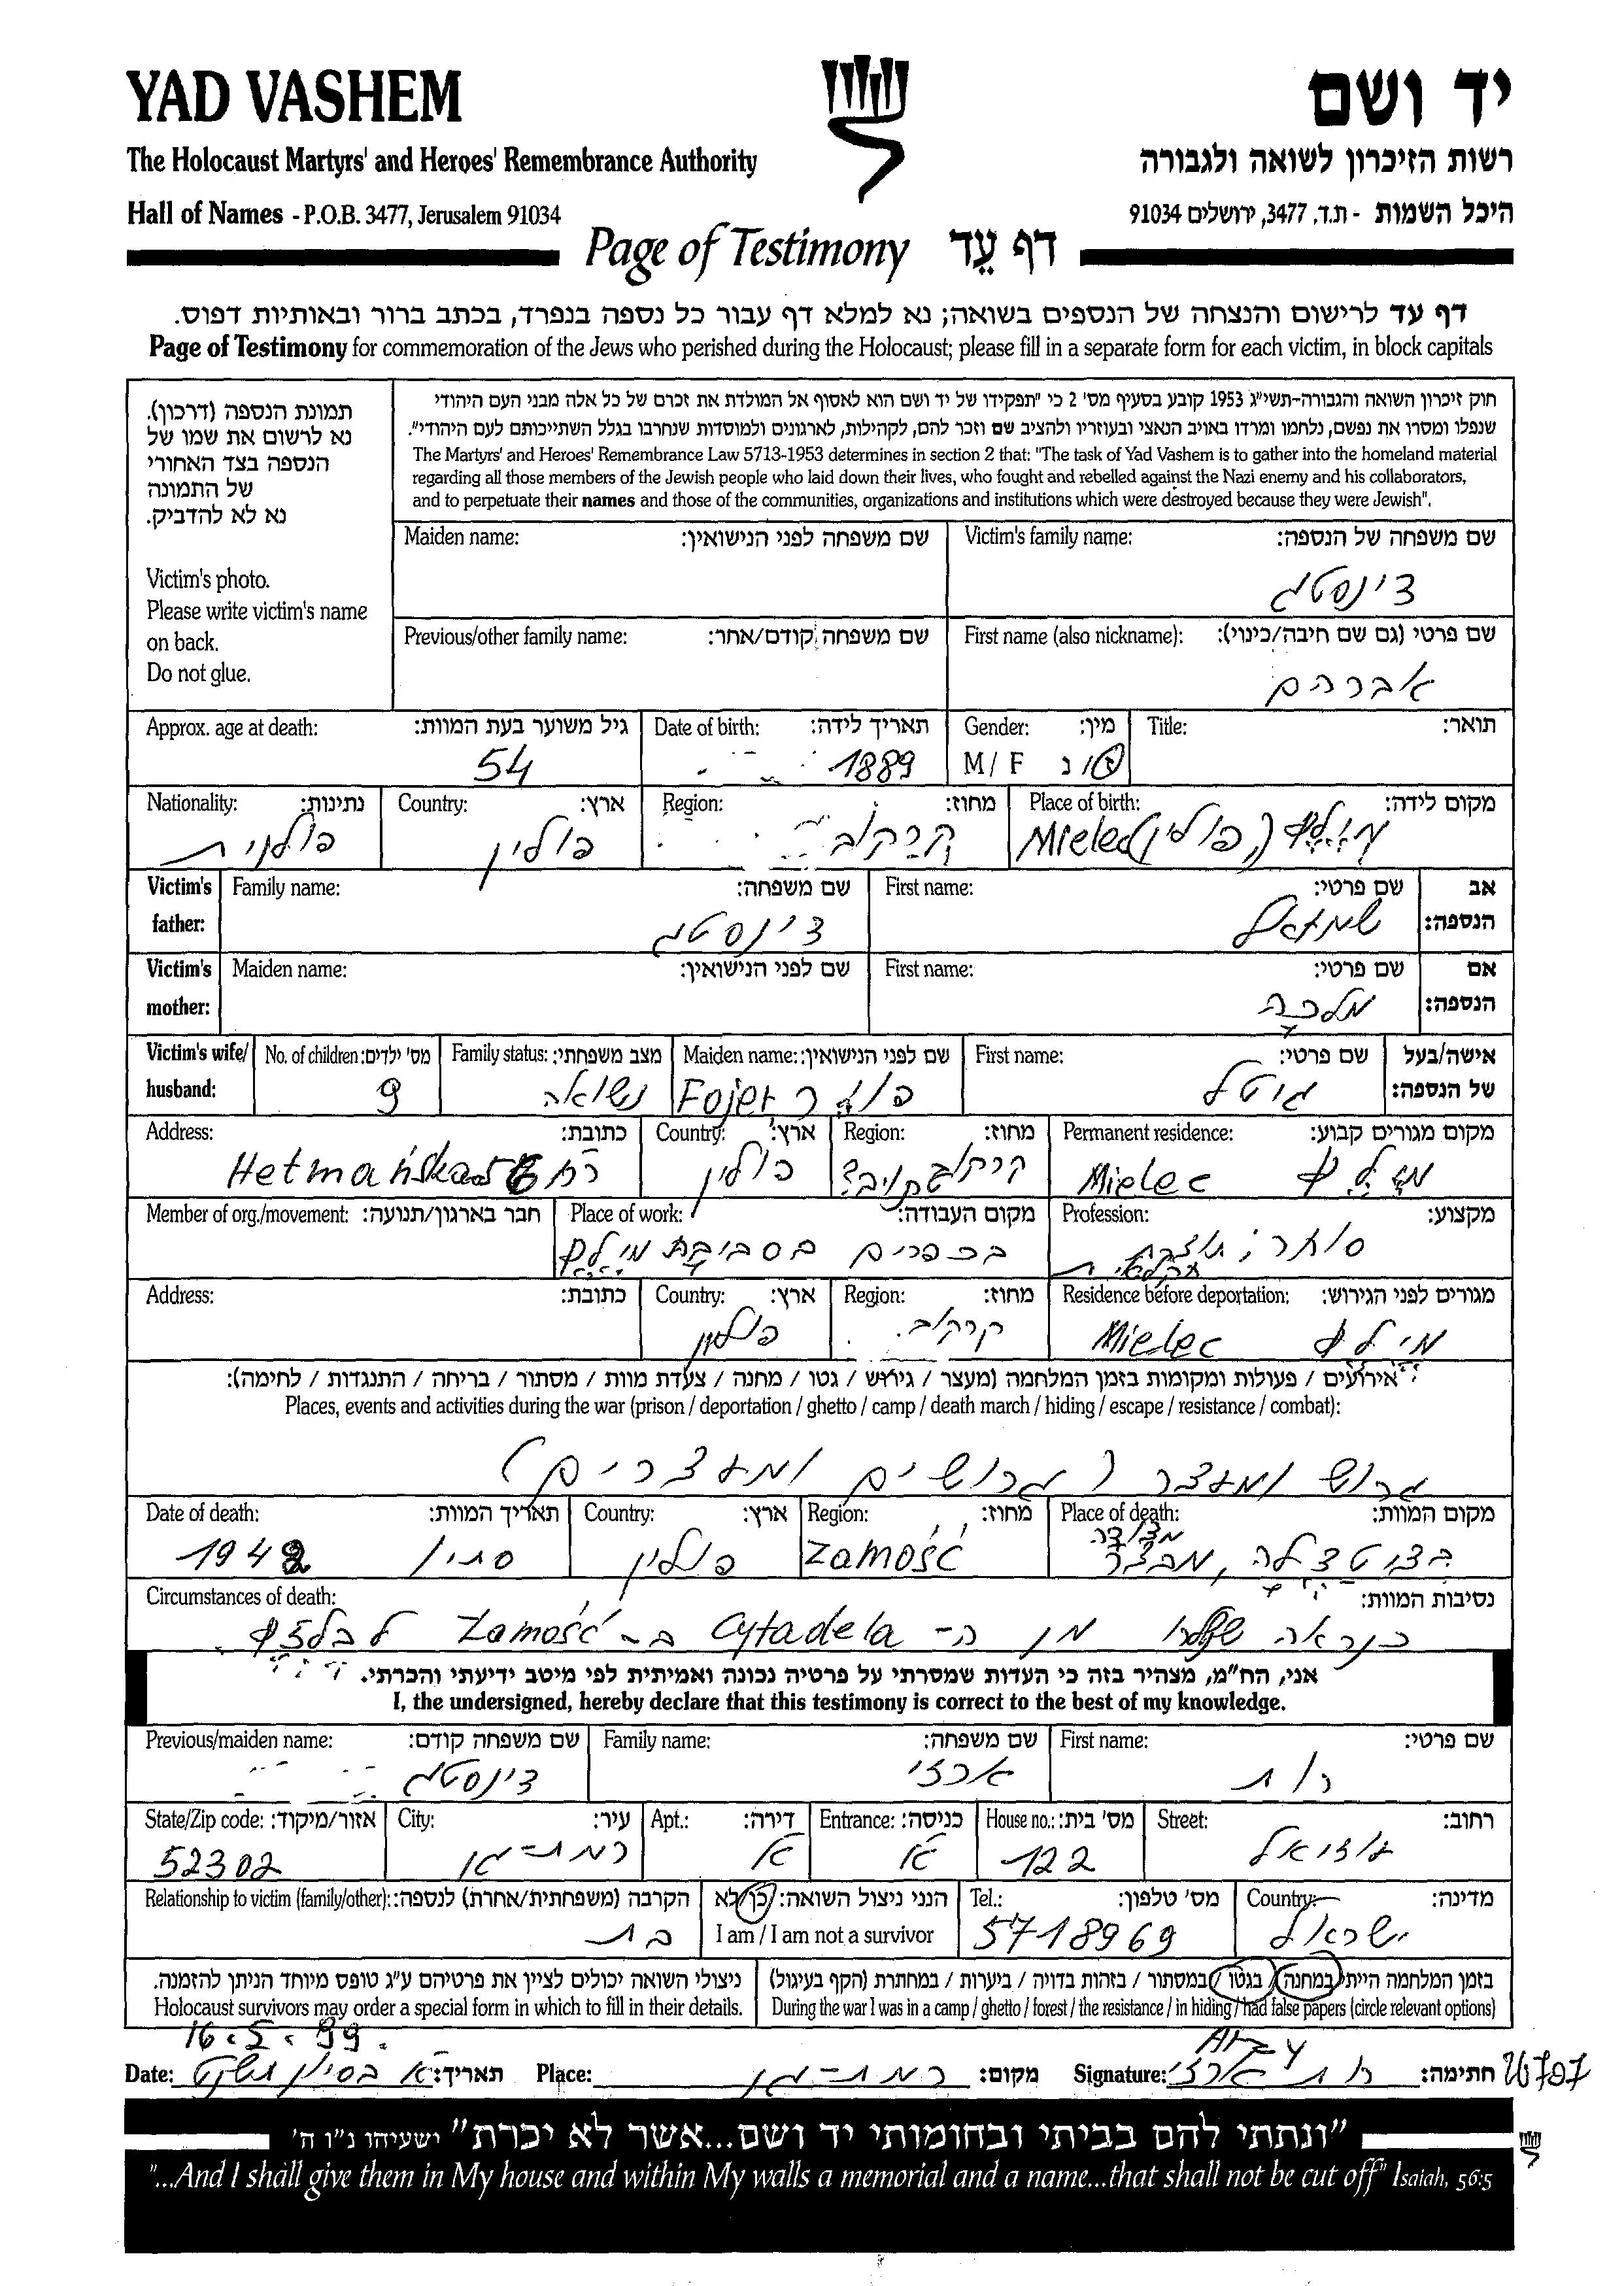 YAD VASHEM
יד ושם
The Holocaust Martyrs' and Heroes' Remembrance Authority
רשות הזיכרון לשואה ולגבורה
Hall of Names - P.O.B. 3477, Jerusalem 91034
היכל השמות - ת.ד. 3477, ירושלים 91034
Page of Testimony דף עֵד
דף עד לרישום והנצחה של הנספים בשואה; נא למלא דף עבור כל נספה בנפרד, בכתב ברור ובאותיות דפוס.
Page of Testimony for commemoration of the Jews who perished during the Holocaust; please fill in a separate form for each victim, in block capitals
תמונת הנספה (דרכון).
נא לרשום את שמו של
הנספה בצד האחורי
של התמונה
נא לא להדביק.
Victim's photo.
Please write victim's name
on back.
Do not glue.
חוק זיכרון השואה והגבורה-תשי"ג 1953 קובע בסעיף מס' 2 כי "תפקידו של יד ושם הוא לאסוף אל המולדת את זכרם של כל אלה מבני העם היהודי
שנפלו ומסרו את נפשם, נלחמו ומרדו באויב הנאצי ובעוזריו ולהציב שם וזכר להם, לקהילות, לארגונים ולמוסדות שנחרבו בגלל השתייכותם לעם היהודי".
The Martyrs' and Heroes' Remembrance Law 5713-1953 determines in section 2 that: "The task of Yad Vashem is to gather into the homeland material
regarding all those members of the Jewish people who laid down their lives, who fought and rebelled against the Nazi enemy and his collaborators,
and to perpetuate their names and those of the communities, organizations and institutions which were destroyed because they were Jewish".
Maiden name: שם משפחה לפני הנישואין:
Victim's family name: שם משפחה של הנספה:
דינסטג
Previous/other family name: שם משפחה קודם/אחר:
First name (also nickname): שם פרטי (גם שם חיבה/כינוי):
אברהם
Approx. age at death: גיל משוער בעת המוות:
54
Date of birth: תאריך לידה:
1889
Gender: מין:
M / F ז / נ
Title: תואר:
Nationality: נתינות:
פולנית
Country: ארץ:
פולין
Region: מחוז:
קרקוב
Place of birth: מקום לידה:
Mielec (פולין)
Victim's father:
Family name: שם משפחה:
דינסטג
First name: שם פרטי:
שמואל
אב הנספה:
Victim's mother:
Maiden name: שם לפני הנישואין:
First name: שם פרטי:
מלכה
אם הנספה:
Victim's wife/ husband:
No. of children: מס' ילדים:
9
Family status: מצב משפחתי:
נשואה
Maiden name: שם לפני הנישואין:
Fojer פויר
First name: שם פרטי:
גיטל
אישה/בעל של הנספה:
Address: כתובת:
רח Hetmańska
Country: ארץ:
פולין
Region: מחוז:
קרקוב
Permanent residence: מקום מגורים קבוע:
Mielec מילץ
Member of org./movement: חבר בארגון/תנועה:
Place of work: מקום העבודה:
בכפרים בסביבת מילץ
Profession: מקצוע:
סוחר; תוצרת
חקלאית
Address: כתובת:
Country: ארץ:
פולין
Region: מחוז:
קרקוב
Residence before deportation: מגורים לפני הגירוש:
Mielec מילץ
אירועים / פעולות ומקומות בזמן המלחמה (מעצר / גירוש / גטו / מחנה / צעדת מוות / מסתור / בריחה / התנגדות / לחימה):
Places, events and activities during the war (prison / deportation / ghetto / camp / death march / hiding / escape / resistance / combat):
גרוש ומעצר (גרושים ומעצרים)
Date of death: תאריך המוות:
סתיו 1942
Country: ארץ:
פולין
Region: מחוז:
Zamość
Place of death: מקום המוות:
מצודה
בציטדלה, מבצר
Circumstances of death: נסיבות המוות:
כנראה שולח מן ה- Cytadela ב- Zamość לבלזץ.
אני, הח"מ, מצהיר בזה כי העדות שמסרתי על פרטיה נכונה ואמיתית לפי מיטב ידיעתי והכרתי.
I, the undersigned, hereby declare that this testimony is correct to the best of my knowledge.
Previous/maiden name: שם משפחה קודם:
דינסטג
Family name: שם משפחה:
ארזי
First name: שם פרטי:
רות
State/Zip code: אזור/מיקוד:
52302
City: עיר:
רמת-גן
Apt.: דירה:
א
Entrance: כניסה:
א
House no.: מס' בית:
122
Street: רחוב:
עוזיאל
Relationship to victim (family/other): הקרבה (משפחתית/אחרת) לנספה:
בת
הנני ניצול השואה: כן/לא
I am / I am not a survivor
Tel.: מס' טלפון:
5718969
Country: מדינה:
ישראל
ניצולי השואה יכולים לציין את פרטיהם ע"ג טופס מיוחד הניתן להזמנה.
Holocaust survivors may order a special form in which to fill in their details.
בזמן המלחמה הייתי במחנה / בגטו / במסתור / בזהות בדויה / ביערות / במחתרת (הקף בעיגול)
During the war I was in a camp / ghetto / forest / the resistance / in hiding / had false papers (circle relevant options)
16.5.99.
Date: א בסיון תשנט תאריך:
Place: רמת-גן מקום:
Arzy
Signature: רות ארזי חתימה:
"ונתתי להם בביתי ובחומותי יד ושם...אשר לא יכרת" ישעיהו נ"ו ה'
"...And I shall give them in My house and within My walls a memorial and a name...that shall not be cut off" Isaiah, 56:5